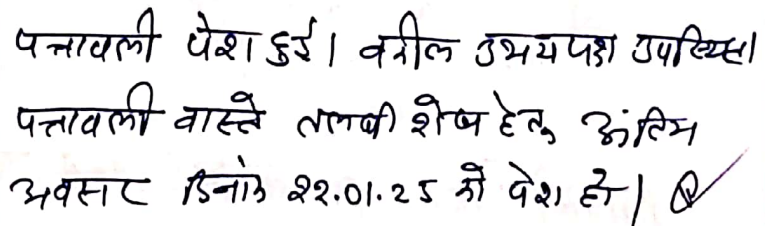 पत्रावली पेश हुई। वकील उभयपक्ष उपस्थित।
पत्रावली वास्ते तलबी शेष हेतु अंतिम
अवसर दिनांक 22.01.25 को पेश हो।